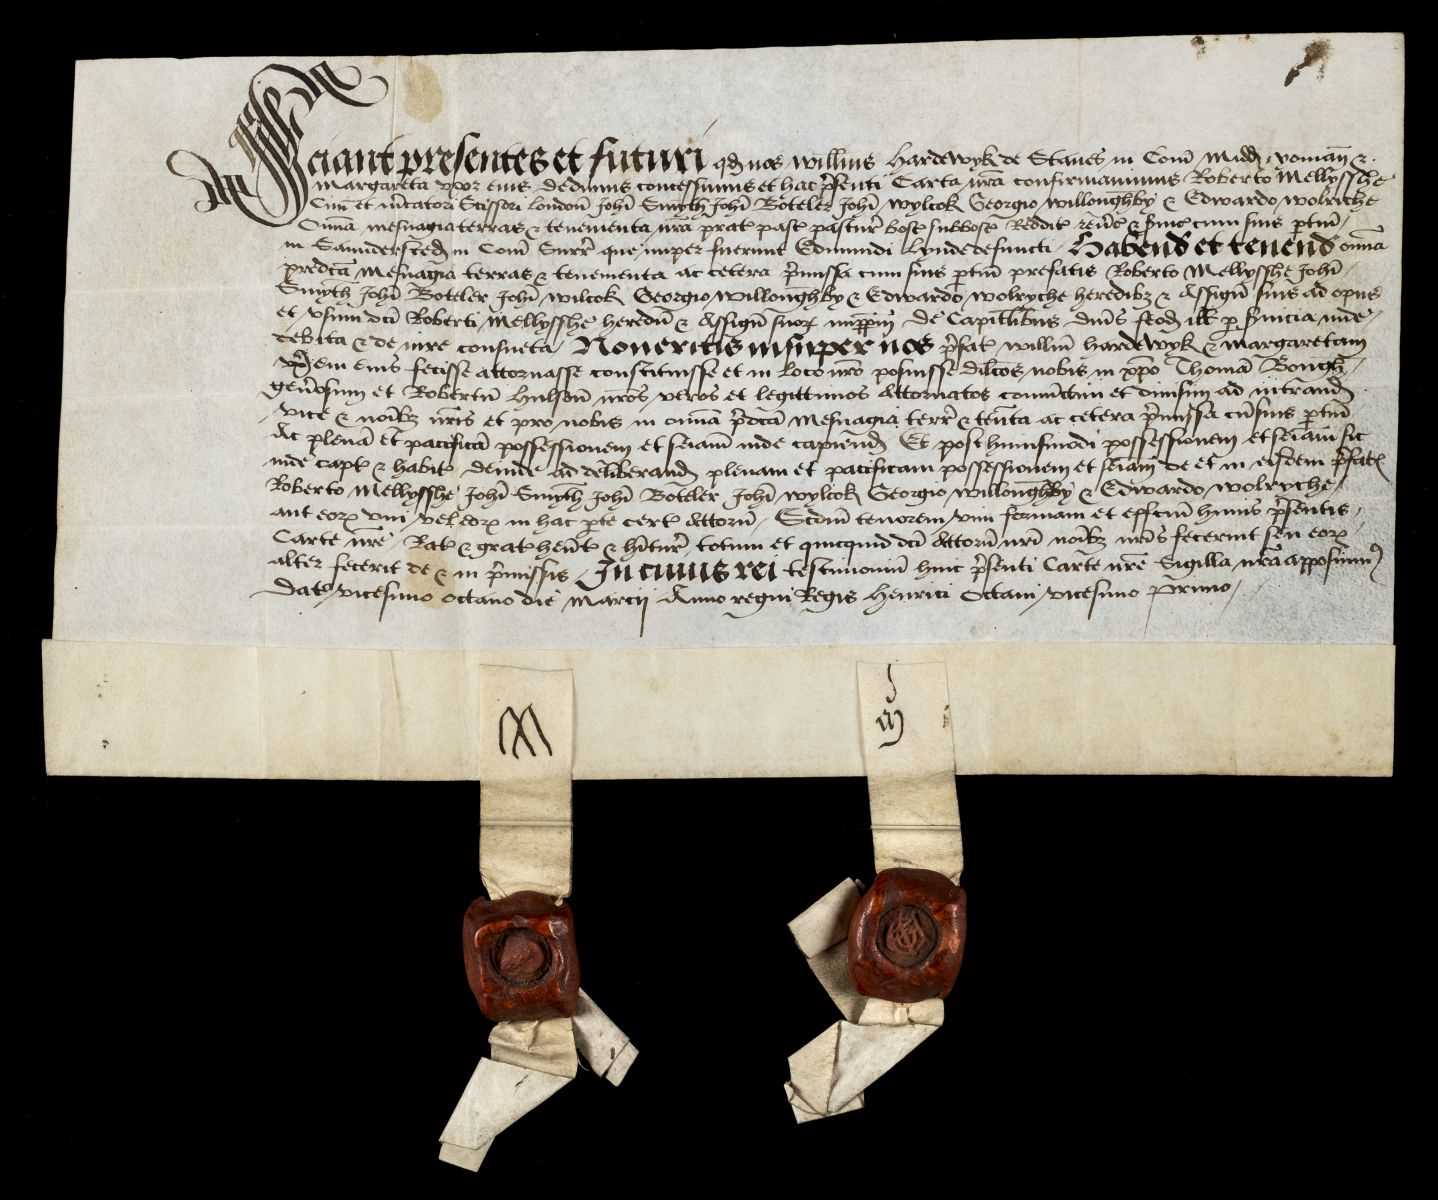 Sciant presentes et futuri qd nos Willms Hardewyk de Stanes in Com Midd yoman &
Margareta uxor eius Dedimus concessimus et hac psenti Carta nra confirmavimus Roberto Mellysshe
Civi et mcatori Scissori london Johi Smyth Johi Boteler Johi Wylcok Georgio Willoughby & Edwardo Wolriche
Omia mesuagia terras & tenementa nra prat past pastur bosc subbosc Reddit & cum suis ptin
in Saundersted in Com Surr que nuper fuerunt Edmundi Lynde defuncti Habend et tenend omia
predcta mesuagia terras & tenementa ac cetera pmissa cum suis ptin prefatis Roberto Mellysshe Johi
Smyth Johi Boteler Johi Wilcok Georgio Willoughby & Edwardo Wolryche heredibz & Assign suis ad opus
et usum dci Roberti Mellysshe hered & Assign suor imppm De Capitlibus dnis feod ill p svicia inde
debita & de iure consueta Noveritis insuper nos pfat Willm Hardewyk & Margaretam
uxem eius fecisse attornasse constituisse et in loco nro posuisse dilcos nobis in xpo Thomam Bough
genosum et Robertu Hulson nros veros et legittimos Attornatos coniunctim et divisim ad intrand
vice & noibz nris et pro nobis in omia pdca mesuagia terr & tenta ac cetera pmissa cu suis ptin
Ac plena et pacifica possessionem et seiam inde capiend Et post huiusmodi possessionem et seiam sic
inde capt & habit deinde ad deliberand plenam et pacificam possessionem et seiam de et in eisdem pfat
Roberto Mellysshe Johi Smyth Johi Boteler Johi Wylcok Georgio Willoughby & Edwardo Wolryche
aut eor uni vel eor in hac pte cert Attorn Scdm tenorem vim formam et effcm huius psentis
Carte nre Rat & grat hent & hitur totum et quicquid dci Attorn nri noibz nris fecerint seu eor
alter fecerit de & in pmissis In cuius rei testimonium huic psenti Carte nre Sigilla nra apposuim9
Dat vicesimo octavo die Marcij Anno regni Regis Henrici Octavi vicesimo Primo
M